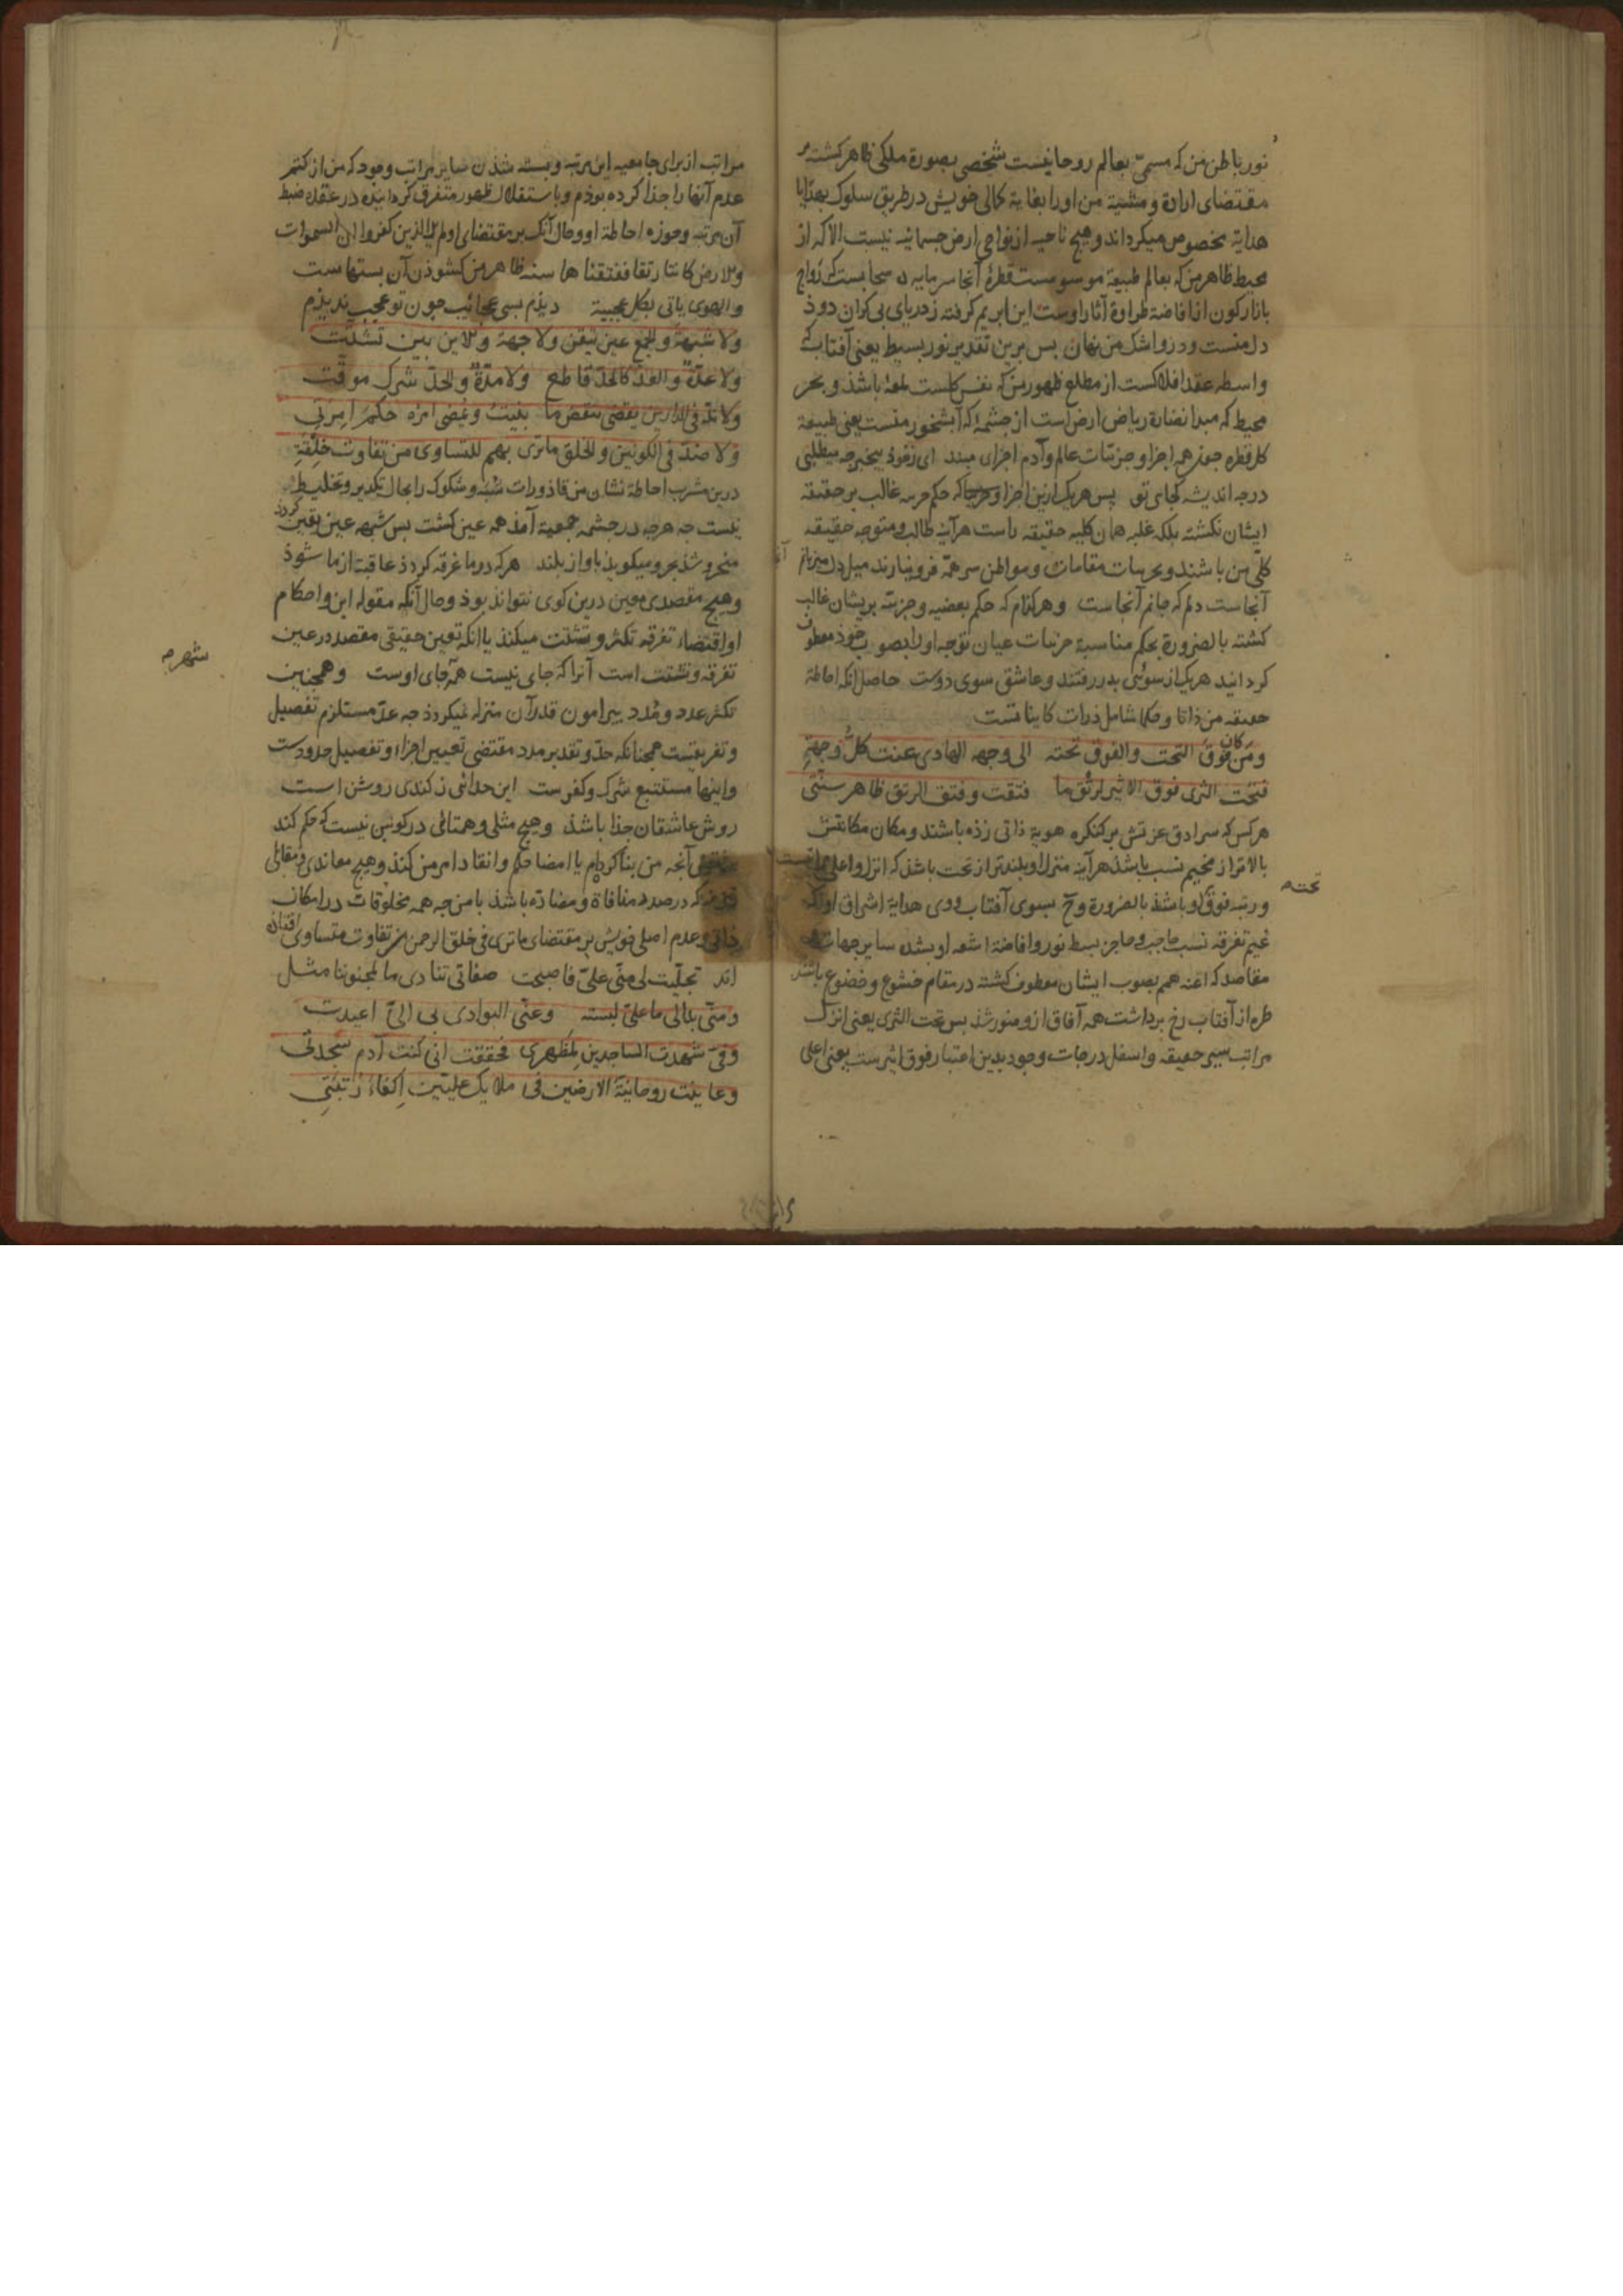 نور باطن من که مسمی بعالم روحانیست شخصی بصورة ملکی ظاهر کشته
مقتضای ارادة و مشیة من اورا بغایة کمالی خویش در طریق سلوک
هدایة مخصوص میکرداند و هیچ ناحیه از نواحی ارض جسمانیه نیست الا که از
محیط ظاهر من که بعالم طبیعة موسومست قطرهٔ آنجا سرمایه
بازار کون از افاضهٔ طراوة آثار اوست این ابر نم کرفته ز دریای بی کران دوذ
دل منست و درو اشک من نهان بس برین تقدیر نور بسیط یعنی آفتاب که
واسطه عقد افلاکست از مطلع ظهور من که نفس کلست لمعهٔ باشذ و بحر
محیط که مبدا نضارة ریاض ارض است از جشمهٔ که آبشخور منست یعنی طبیعة
کل قطره جون همه اجزا و جزئیات عالم و آدم اجزای میند ای زخوذ بیخبر جه میطلبی
درجه اندیشه کجای تو پس هریک ازین اجزا و جزئیات که حکم جزئیه غالب بر حقیقة
ایشان نکشته بلکه غلبه همان کلیه حقیقه راست هرآینه طالب و متوجه حقیقة
کلی من باشند و بجزئیات مقامات و مواطن سر همة فرو نیارند میل دل من باز
آنجاست دلم که جانم آنجاست و هرکدام که حکم بعضیه و جزئیة بریشان غالب
کشته بالضرورة بحکم مناسبة جزئیات عیان توجه اورا بصوب خوذ معطوف
کردانید هریک از سوئی بدر رفتند و عاشق سوی دوست حاصل انکه احاطة
حقیقه من ذاتا و حکما شامل ذرات کایناتست
ومن کان فوق التحت والفوق تحته الی وجهه الهادی عنت کل وجهة
فتحت الثری فوق الاثیر لرتق ما فتقت وفتق الرتق ظاهر سنتی
هرکس که سرادق عزتش بر کنکره هویة ذاتی زذه باشند و مکان مکانتش
بالاتر از مخیم نسب باشذ هرآینه منزل او بلندتر از تحت باشذ که انزل و اعلی
و رتبه فوق او باشذ بالضرورة وجه بسوی آفتاب وی هدایة اشراق
غیم تفرقه نسب حاجب و حاجز بسط نور و افاضة اشعه او بشد سایر جهات
مقاصد که اعنه همم بصوب ایشان معطوف کشته در مقام خشوع و خضوع باشند
طره از آفتاب رخ برداشت همه آفاق ازو منور شذ بس تحت الثری یعنی انزل
مراتب سیر حقیقه و اسفل درجات وجود بدین اعتبار فوق اثیرست یعنی اعلی
تحته
مراتب از برای جامعیه این مرتبه و بسته شذن سایر مراتب وجود که من از کتم
عدم آنها را جذا کرده بوذم و باستقلال ظهور متفرق کردانیده در عقده ضبط
آن مرتبه و حوزه احاطة او و حال آنک بر مقتضای اولم یر الذین کفروا ان السموات
والارض کانتا رتقا ففتقناهما سنه ظاهر من کشوذن آن بستهاست
والهوی یاتی بکل عجیبة دیذم بسی عجائب جون تو عجب ندیذم
ولا شبهة والجمع عین تیقن ولا جهة والاین بین تشتت
ولا عدة والعد کالحد قاطع ولا مدة والحد شرک موقت
ولا ند فی الدارین یقضی بنقض ما بنیت ویمضی امره حکم امرتی
ولا ضد فی الکونین والخلق ما تری بهم للتساوی من تفاوت خلقة
درین مشرب احاطة نشان من قاذورات شبه و شکوک را مجال تکدیر و تخلیط
نیست جه هرجه در جشمه جمعیة آمذ همه عین کشت بس شبهه عین یقین کردذ
منخر و شذ بحر و میکویذ باواز بلند هرکه در ما غرقه کردذ عاقبة از ما شوذ
و هیچ مقصدی معین درین کوی نتواند بوذ و حال آنکه مقوله این و احکام
او اقتضاء تفرقه تکثر و تشتت میکنذ با انکه تعین حقیقی مقصد در عین
تفرقه و تشتت است آنرا که جای نیست همه جای اوست و همجنین
تکثر عدد و مدد بیرامون قدر آن منزله نمیکردذ جه عد مستلزم تفصیل
و تفریقست همجنانکه حد و تقدیر مدد مقتضی تعیین اجزاء و تفصیل حدودست
و اینها مستتبع شرک و کفرست این جدائی ز کندی روشن است
روش عاشقان جذا باشذ و هیچ مثلی و همتائی در کونین نیست که حکم کند
آنجه من بنا کرده‌ام یا امضا حکم و انفاذ امر من کند و هیچ معاندی و مقابلی
که در صدد منافاة و مضادة باشذ با من جه همه مخلوقات در امکان
ذاتی و عدم اصلی خویش بر مقتضای ما تری فی خلق الرحمن من تفاوت متساوی افتاده
اند تجلیت لی منی علی فاصبحت صفاتی تنادی ما لمجنوننا مثل
ومنی بدالی ما علی لبسته وعنی البوادی بی الی اعیدت
وفی شهدت الساجدین لمظهری فحققت انی کنت آدم سجدتی
وعاینت روحانیة الارضین فی ملایک علیین اکفاء رتبتی
شهرجه